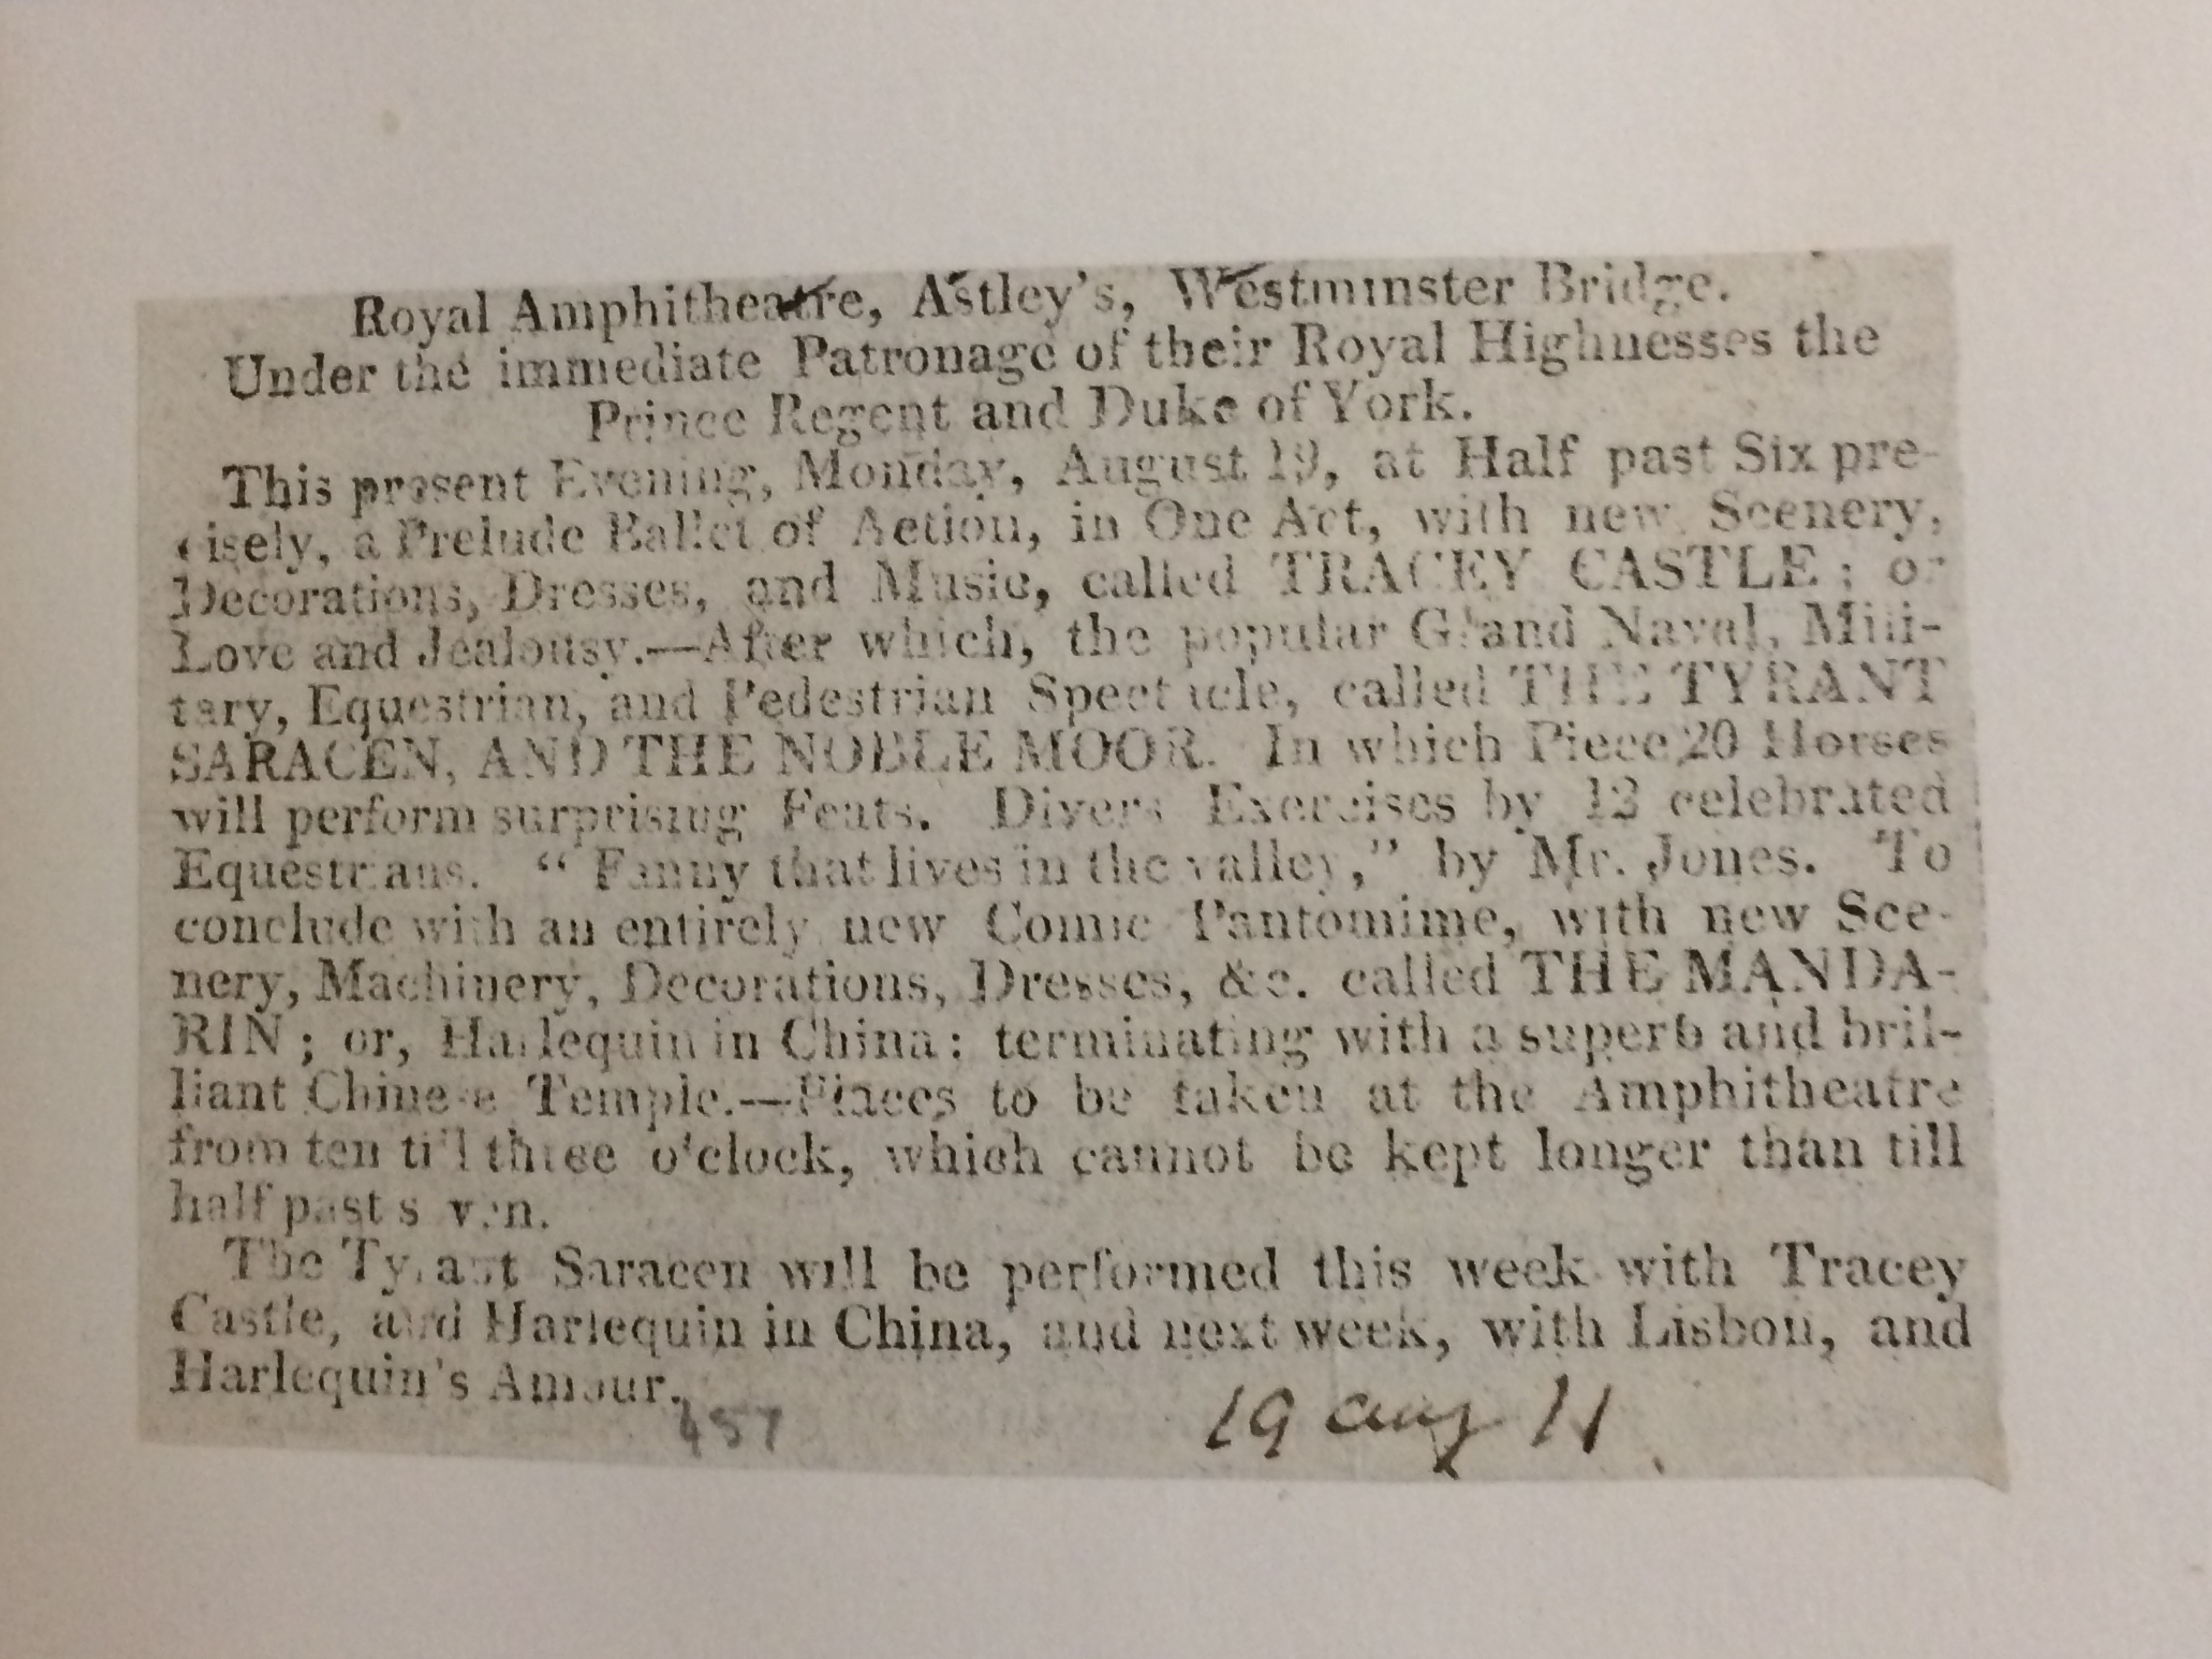 Royal Amphitheatre, Astley's, Westminster Bridge.
Under the immediate Patronage of their Royal Highnesses the
Prince Regent and Duke of York.
This present Evening, Monday, August 19, at Half past Six pre-
cisely, a Prelude Ballet of Action, in One Act, with new Scenery,
Decorations, Dresses, and Music, called TRACEY CASTLE; or
Love and Jealousy.—After which, the popular Grand Naval, Mili-
tary, Equestrian, and Pedestrian Spectacle, called THE TYRANT
SARACEN, AND THE NOBLE MOOR. In which Piece 20 Horses
will perform surprising Feats. Divers Exercises by 12 celebrated
Equestrians. "Fanny that lives in the valley," by Mr. Jones. To
conclude with an entirely new Comic Pantomime, with new Sce-
nery, Machinery, Decorations, Dresses, &c. called THE MANDA-
RIN; or, Harlequin in China: terminating with a superb and bril-
liant Chinese Temple.—Places to be taken at the Amphitheatre
from ten till three o'clock, which cannot be kept longer than till
half past seven.
The Tyrant Saracen will be performed this week with Tracey
Castle, and Harlequin in China, and next week, with Lisbon, and
Harlequin's Amour.
457
19 aug 11